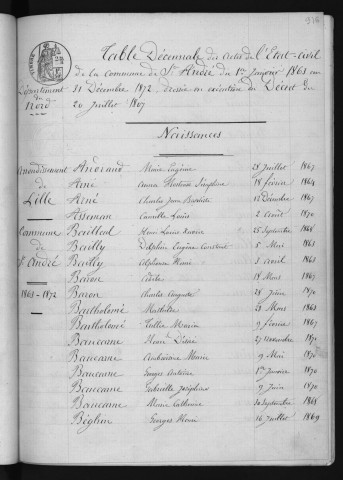 Table Décennale des Actes de l'Etat-civil
de la commune de St André du 1er Janvier 1863 au
31 Décembre 1872, dressée en exécution du Décret du
20 Juillet 1807
Département
du
Nord
Naissances
Arrondissement
de
Lille
Commune
de
St André
1863-1872
Andraud Marie Eugène 28 Juillet 1867
Arné Anna 18 février 1864
Arné Charles Jean Baptiste 12 Décembre 1867
Asseman Camille Louis 2 avril 1870
Bailleul Henri Louis 25 Septembre 1868
Bailly Delphin Eugène Constant 5 Mai 1863
Bailly Alphonse Henri 5 avril 1865
Baron Adèle 18 Mars 1867
Baron Charles Auguste 28 Juin 1870
Bartholomé Mathilde 23 Mars 1863
Bartholomé 9 février 1867
Baucarne Henri Désiré 27 novembre
Baucarne Marie 9 Mai 1870
Baucarne Georges Antoine 1er Janvier 1870
Baucarne Gabrielle Joséphine 9 Juin 1870
Baucarne Marie Catherine 20 Septembre 1868
Béghin Georges Henri 16 Juillet 1869